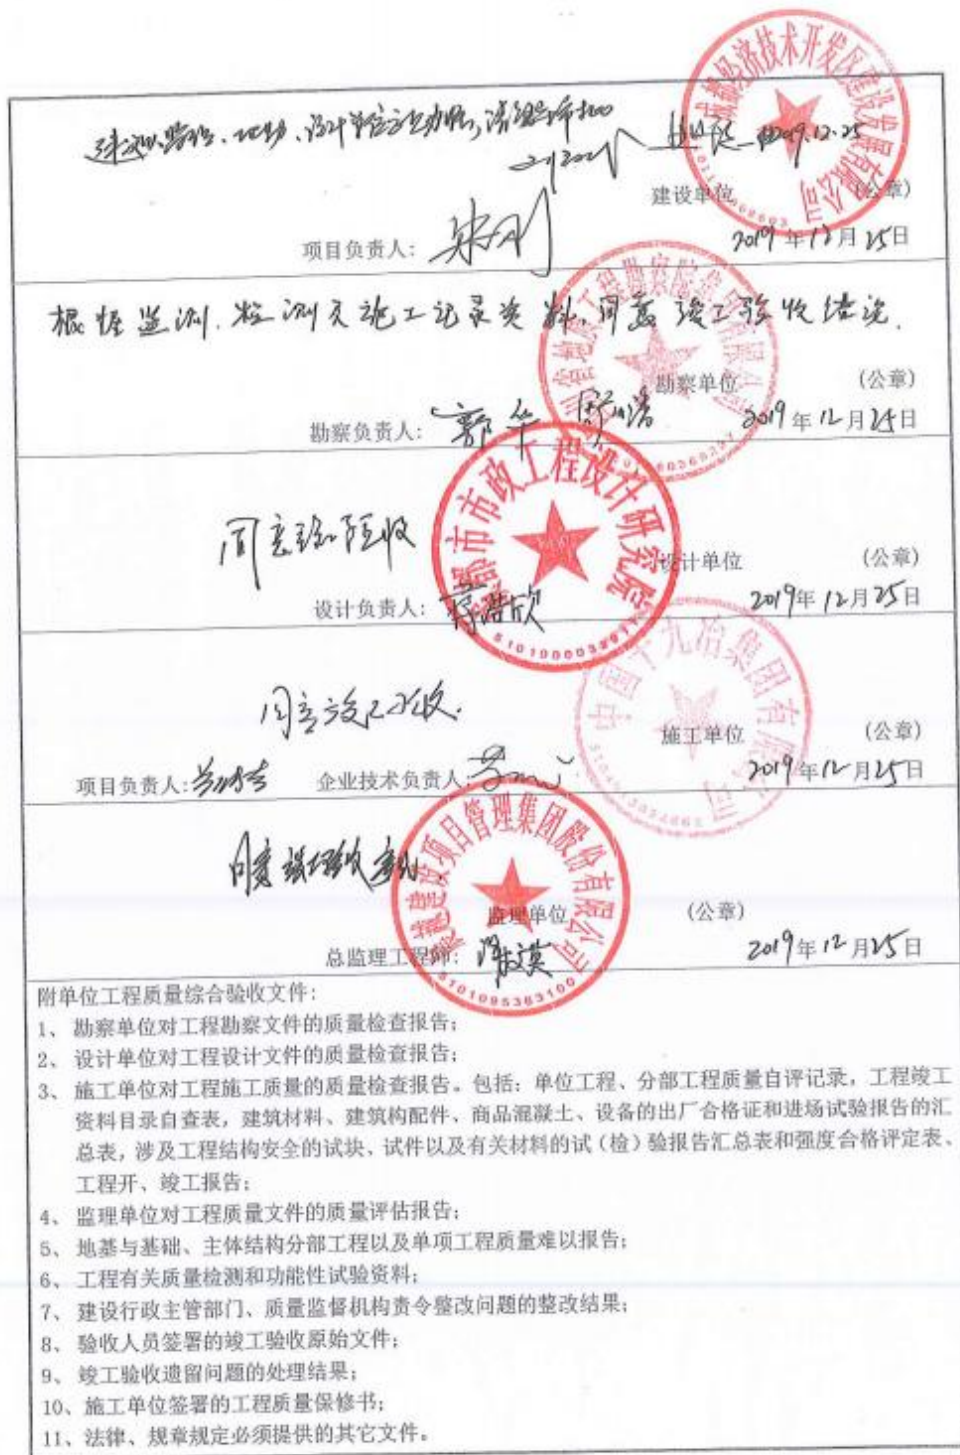 2019.12.25
建设单位 (公章)
项目负责人: 2019年12月25日
根据监测、检测及施工记录资料,同意竣工验收结论.
勘察单位 (公章)
勘察负责人: 郭华 2019年12月25日
成都市市政工程设计研究院
同意验收
设计单位 (公章)
设计负责人: 2019年12月25日
中国十九冶集团有限公司
同意竣工验收.
施工单位 (公章)
项目负责人: 企业技术负责人: 2019年12月25日
建设项目管理集团股份有限公司
5101095363100
监理单位 (公章)
总监理工程师: 2019年12月25日
附单位工程质量综合验收文件:
1、 勘察单位对工程勘察文件的质量检查报告;
2、 设计单位对工程设计文件的质量检查报告;
3、 施工单位对工程施工质量的质量检查报告。包括: 单位工程、分部工程质量自评记录, 工程竣工
资料目录自查表, 建筑材料、建筑构配件、商品混凝土、设备的出厂合格证和进场试验报告的汇
总表, 涉及工程结构安全的试块、试件以及有关材料的试(检)验报告汇总表和强度合格评定表、
工程开、竣工报告;
4、 监理单位对工程质量文件的质量评估报告;
5、 地基与基础、主体结构分部工程以及单项工程质量难以报告;
6、 工程有关质量检测和功能性试验资料;
7、 建设行政主管部门、质量监督机构责令整改问题的整改结果;
8、 验收人员签署的竣工验收原始文件;
9、 竣工验收遗留问题的处理结果;
10、施工单位签署的工程质量保修书;
11、法律、规章规定必须提供的其它文件。